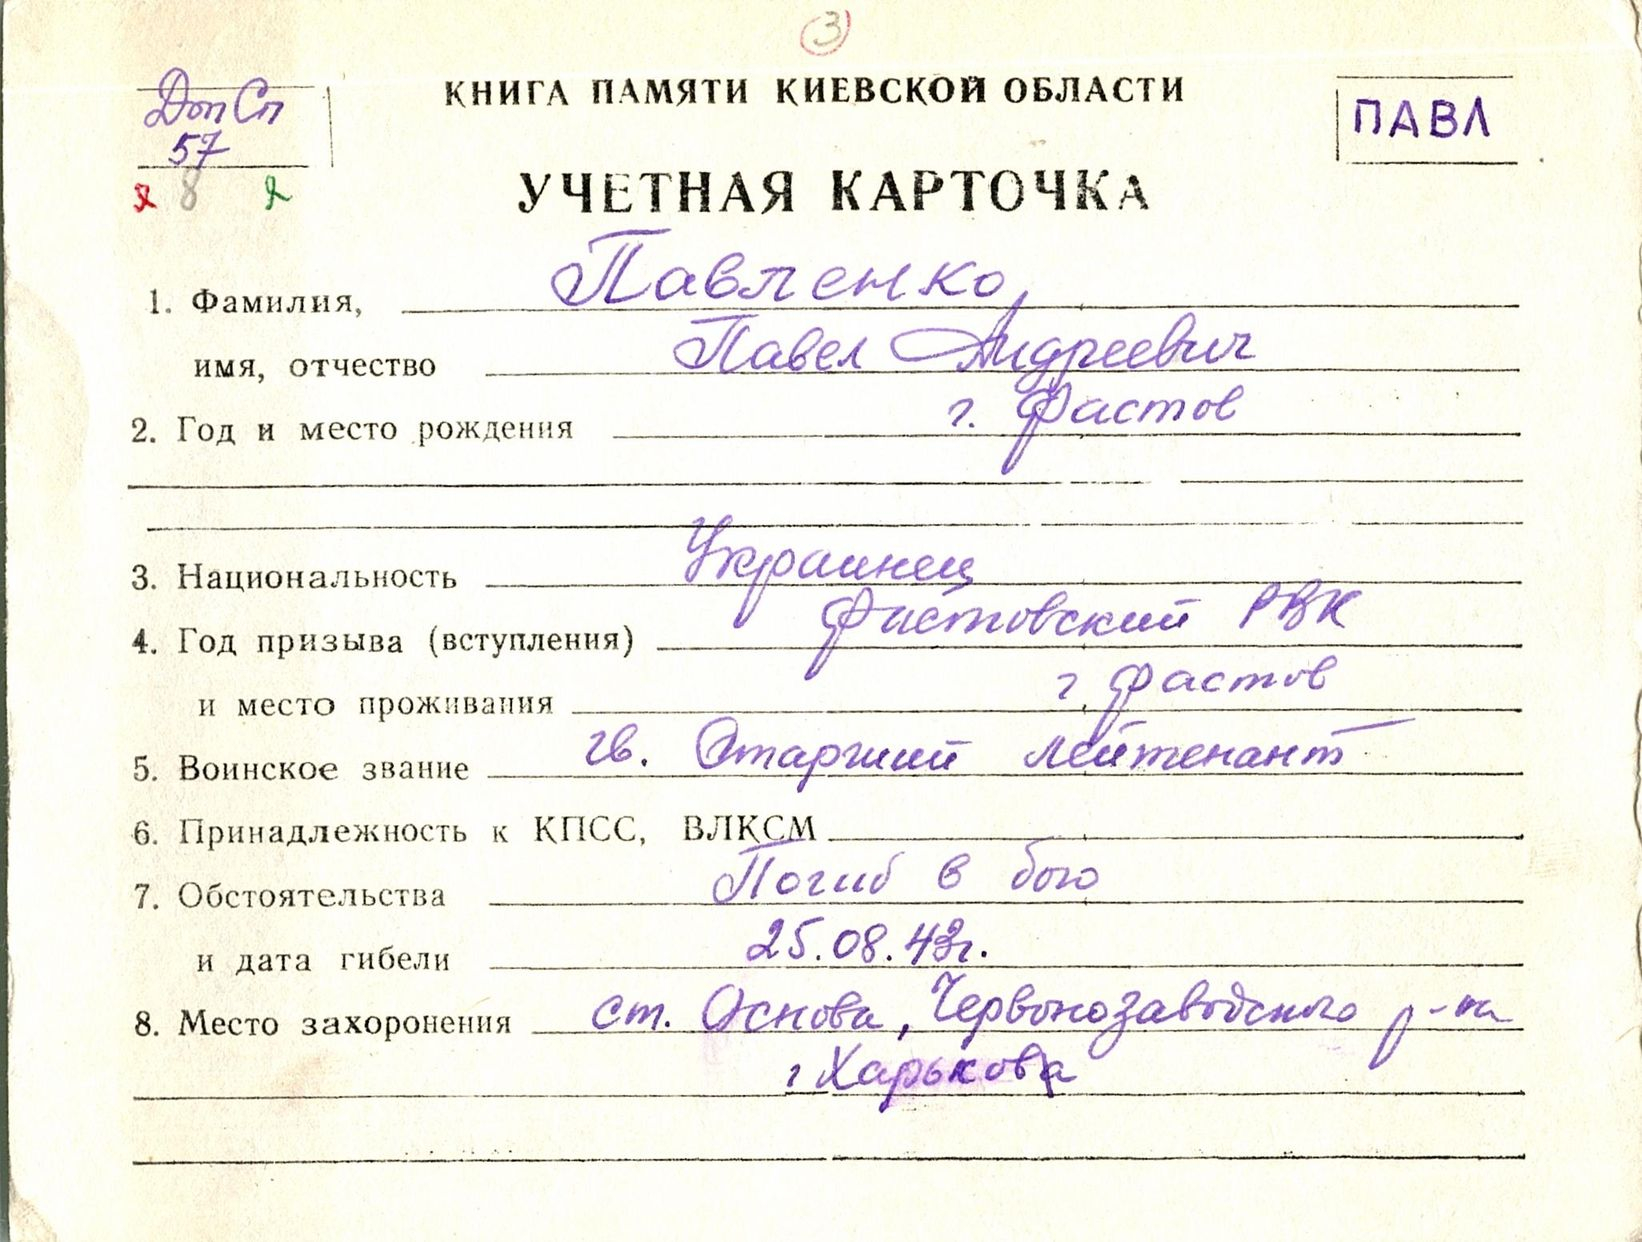 3
Доп Сп
57
КНИГА ПАМЯТИ КИЕВСКОЙ ОБЛАСТИ
ПАВЛ
8
УЧЕТНАЯ КАРТОЧКА
1. Фамилия, Павленко,
имя, отчество Павел Андреевич
2. Год и место рождения г. Фастов
3. Национальность Украинец
4. Год призыва (вступления) Фастовский РВК
и место проживания г Фастов
5. Воинское звание гв. Старший лейтенант
6. Принадлежность к КПСС, ВЛКСМ
7. Обстоятельства Погиб в бою
и дата гибели 25.08.43г.
8. Место захоронения ст. Основа, Червонозаводского р-на
г Харькова